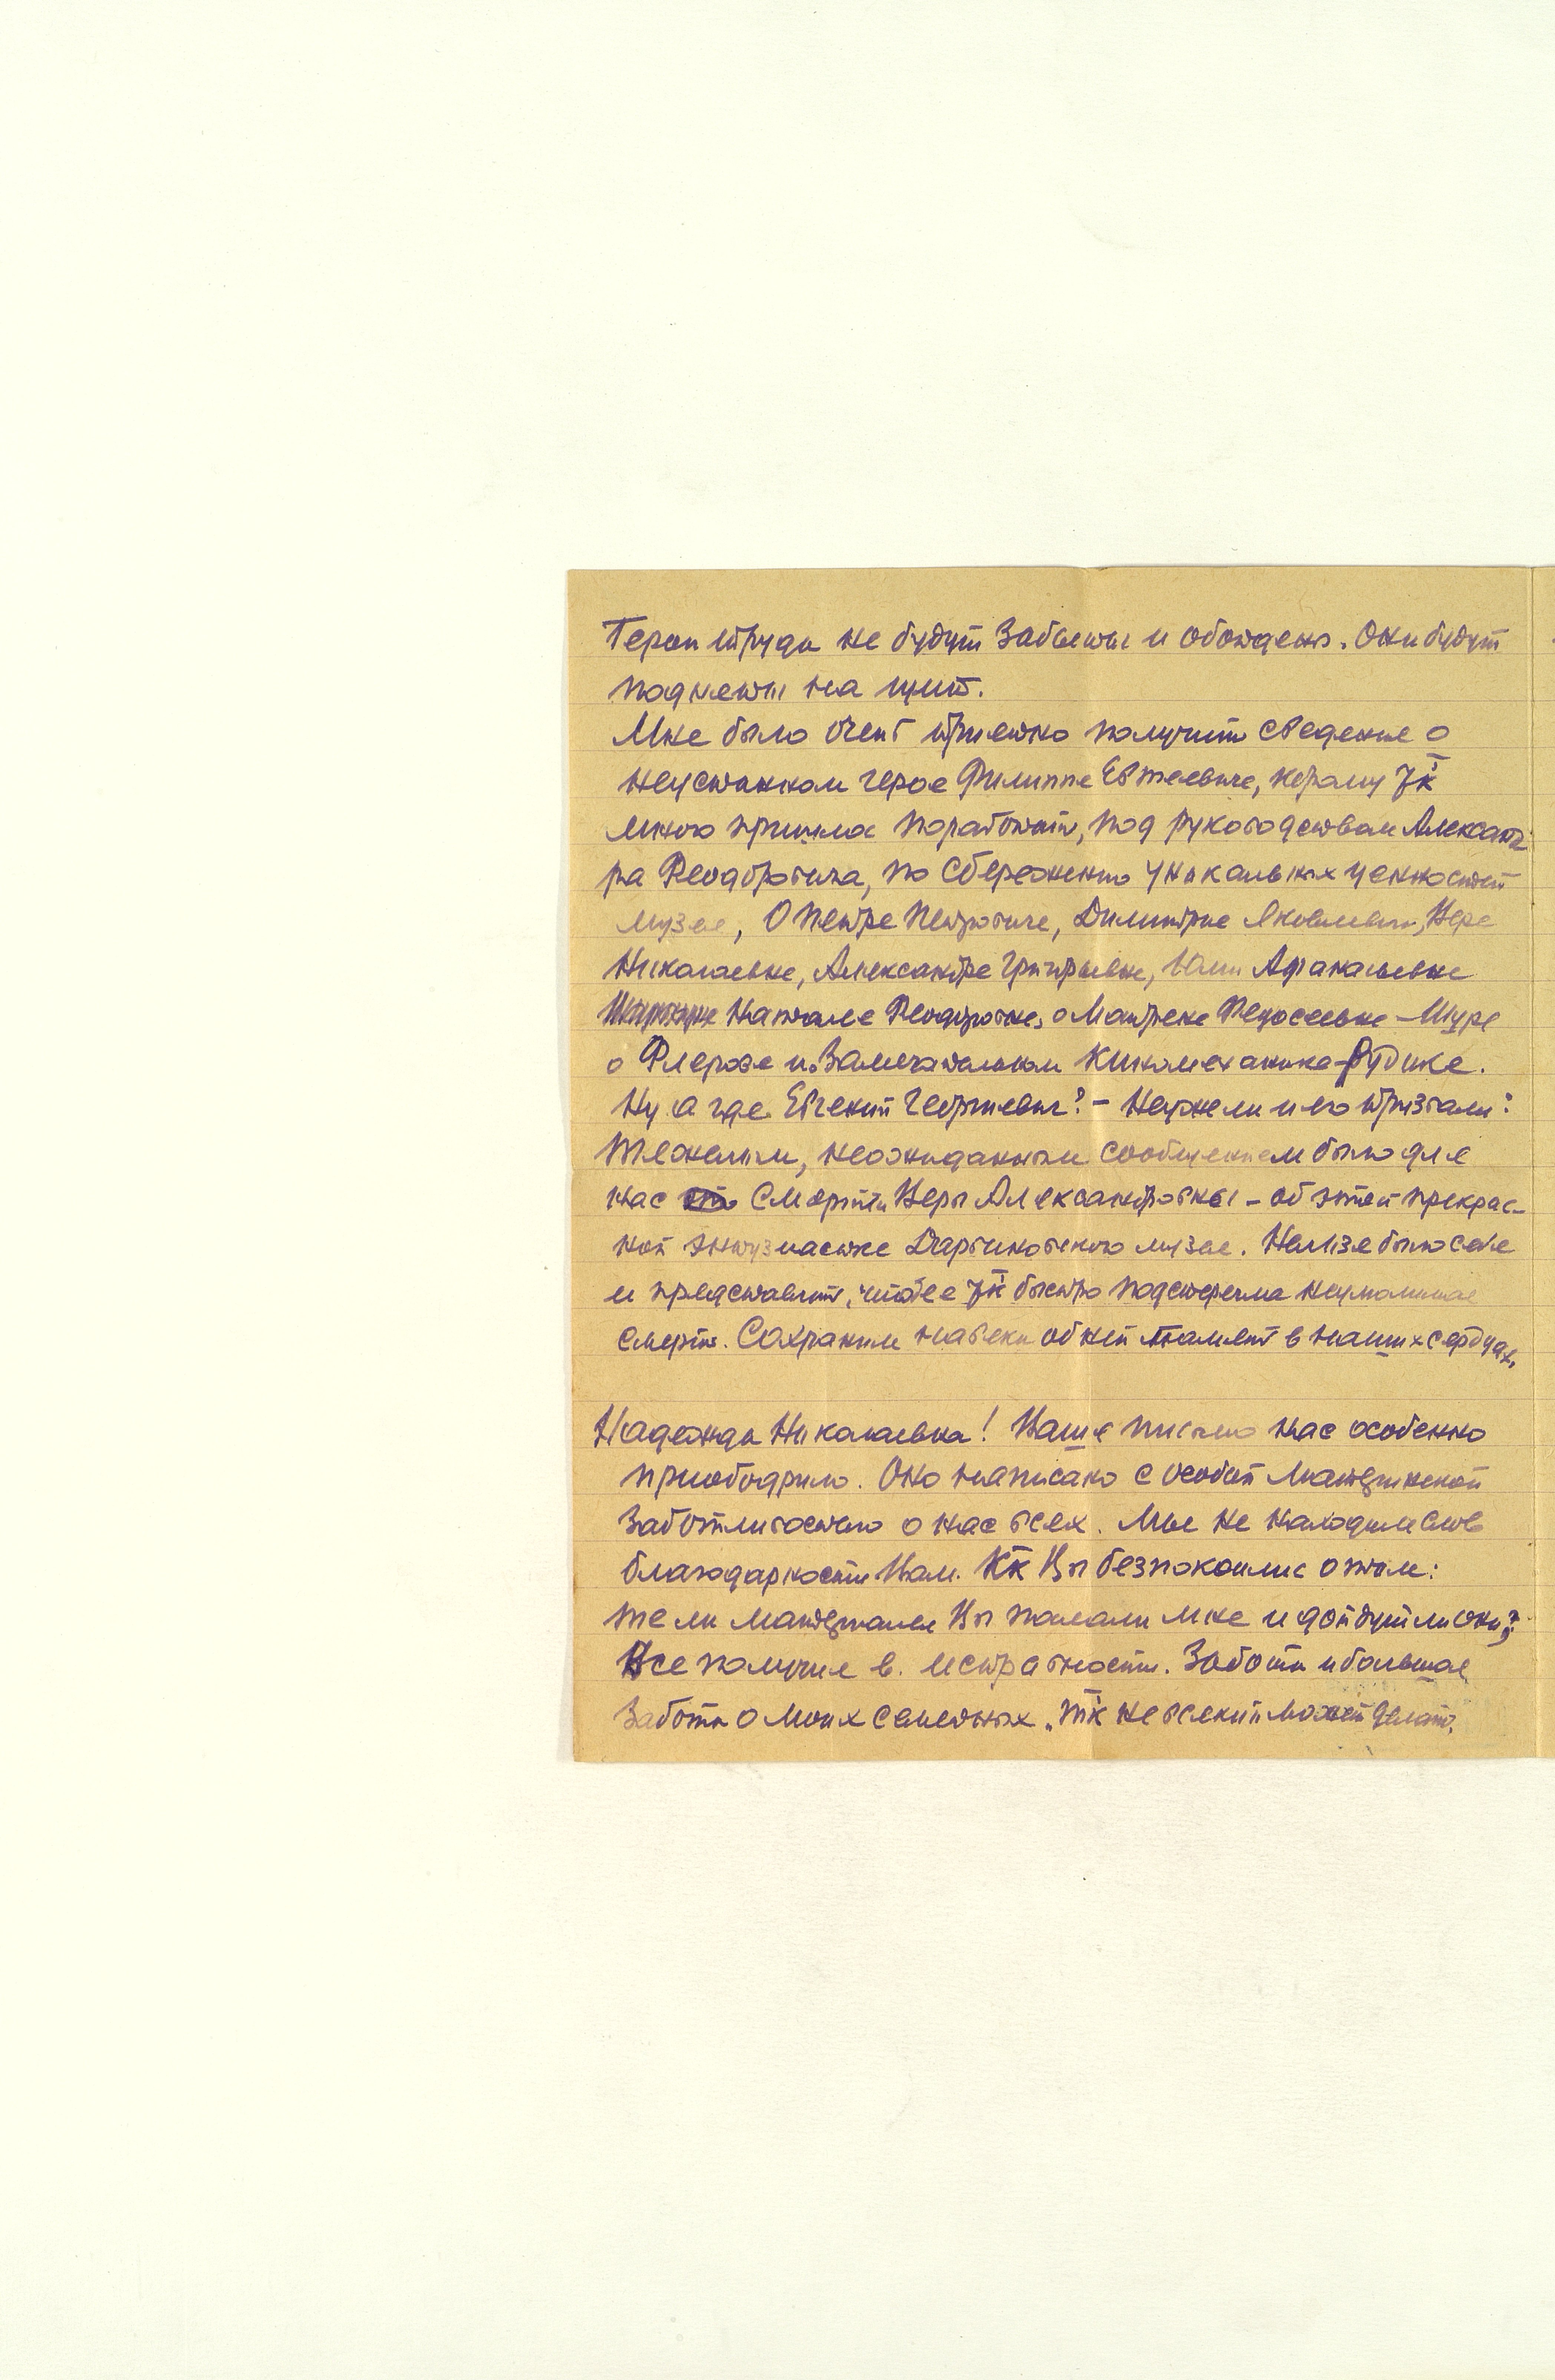 Герои труда не будут забыты и обойдены. Они будут
подняты на щит.
Мне было очень приятно получить сведение о
неустанном герое Филиппе Евтеевиче, корому тк
много пришлос поработать, под руководством Александ
ра Феодоровича, по сбережению уникальных ценностей
музея, О Петре Петровиче, Димитрие Яковлевич, Вере
Николаевне, Александре Григорьевне, Афанасьевне
Наталье Феодоровне, о Матрене Федосеевне – Шуре
о Флерове и замечательном киномеханике – Рудике.
Ну а где Евгений Георгиевич? – Неужели и его призвали?
Тяжелым, неожиданным сообщением было для
нас смерти Веры Александровны – об этой прекрас-
ной энтузиастке Дарвиновского музея. Нельзя было себе
и представить, что ее тк быстро подстерегла неумолимая
смерть. Сохраним навеки об ней память в наших сердцах.
Надежда Николаевна! Ваше письмо нас особенно
приободрило. Оно написано с особой материнской
заботливостью о нас всех. Мы не находим слов
благодарности Вам. Кк Вы безпокоились о том:
те ли материалы Вы послали мне и дойдут ли они?
Все получил в. исправности. Заботы и большая
забота о моих семейных, тк не всякий может делать.